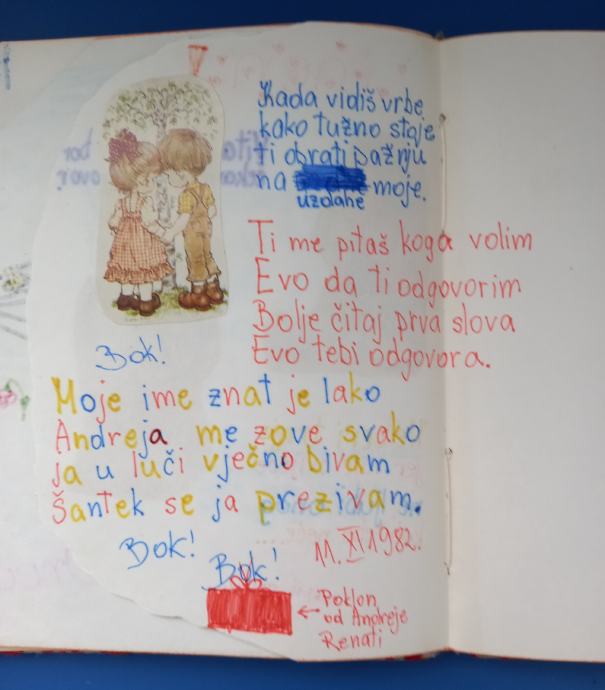 Kada vidiš vrbe
kako tužno stoje
ti obrati pažnju
na uzdahe moje.
Ti me pitaš koga volim
Evo da ti odgovorim
Bolje čitaj prva slova
Evo tebi odgovora.
Bok!
Moje ime znat je lako
Andreja me zove svako
ja u luči vječno bivam
Šantek se ja prezivam.
Bok!
Bok!
11. XI 1982.
Poklon
od Andreje
Renati